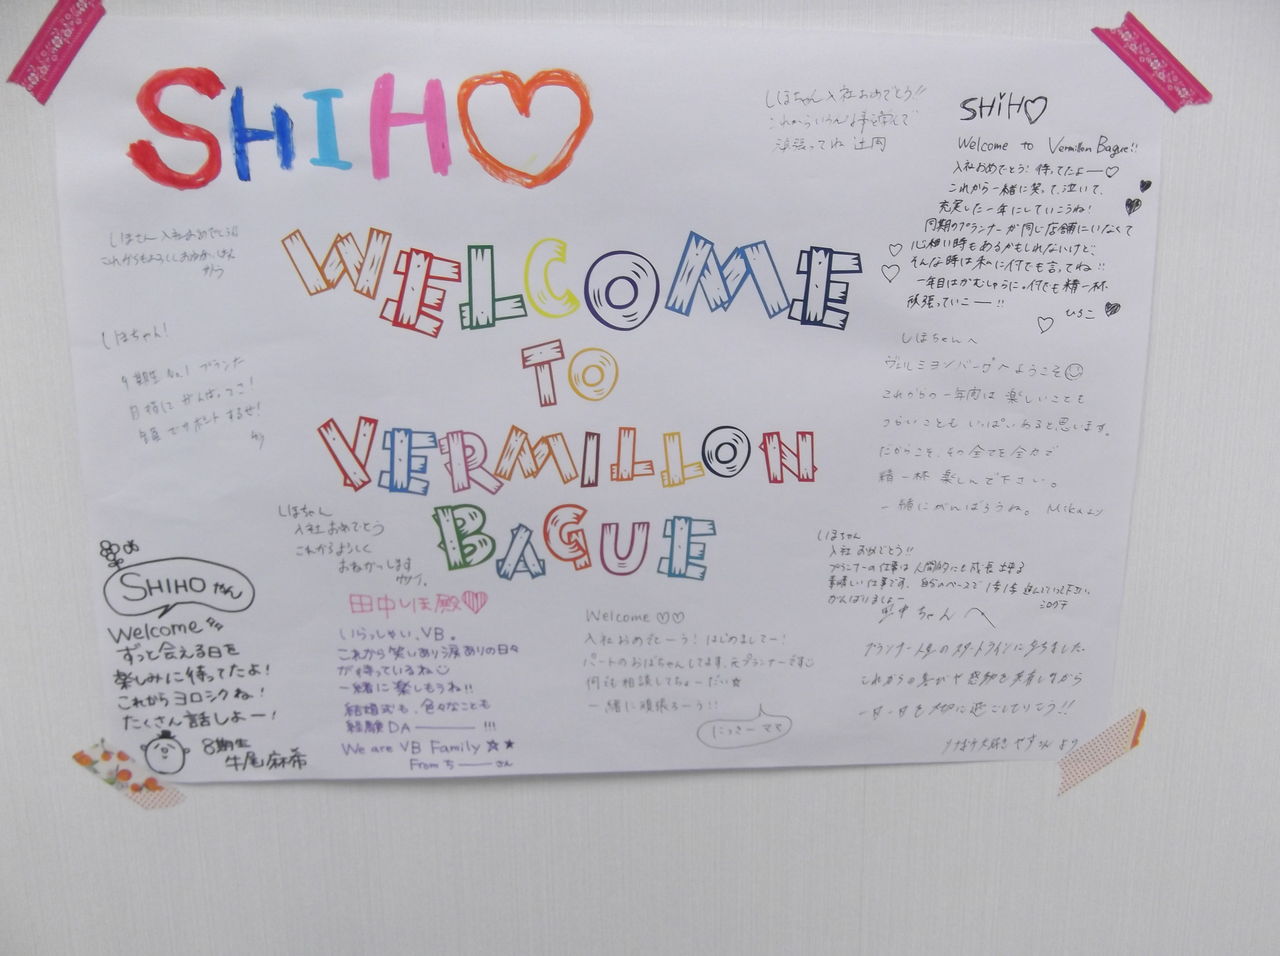 SHIHO
WELCOME
TO
VERMILLON
BAGUE
しほちゃん入社おめでとう!!
頑張ってね 辻岡
SHiH♡
Welcome to Vermillon Bague!!
入社おめでとう! 待ってたよー♡
これから一緒に笑って、泣いて、
充実した一年にしていこうね!
同期のプランナーが同じ店舗にいなくて
心細い時もあるかもしれないけど、
そんな時は私に何でも言ってね!!
一年目はがむしゃらに。何でも精一杯
頑張っていこー!!
ひろこ
しほさん入社おめでとう!!
しほちゃん!
9期生No.1プランナー
目指してがんばってこ!
全員でサポートするぜ!
しほちゃんへ
ヴェルミヨンバーグへようこそ☺
これからの一年間は楽しいことも
つらいこともいっぱいあると思います。
だからこそ、その全てを全力で
精一杯楽しんで下さい。
一緒にがんばろうね。 Mikaより
しほちゃん
入社おめでとう
これからよろしく
おねがいします
しほちゃん
入社おめでとう!!
プランナーの仕事は人間的にも成長出来る
素晴しい仕事です。自分のペースで1歩1歩進んでいって下さい。
がんばりましょー
SHIHOちゃん
Welcome
ずっと会える日を
楽しみに待ってたよ!
これからヨロシクね!
たくさん話しよー!
8期生
牛尾麻希
田中しほ殿♡
いらっしゃい、VB。
これから笑いあり涙ありの日々
が待っているね☺
一緒に楽しもうね!!
結婚式も、色々なことも
経験DA――!!!
We are VB Family ☆★
From ちーさん
Welcome ♡♡
入社おめでとーう! はじめましてー!
パートのおばちゃんしてます、元プランナーです☺
何でも相談してちょーだい☆
一緒に頑張ろーう!!
にっさーママ
田中ちゃんへ
プランナー人生のスタートラインに立ちました。
これからの喜びや感動を共有しながら
一日一日を大切に過ごして行こう!!